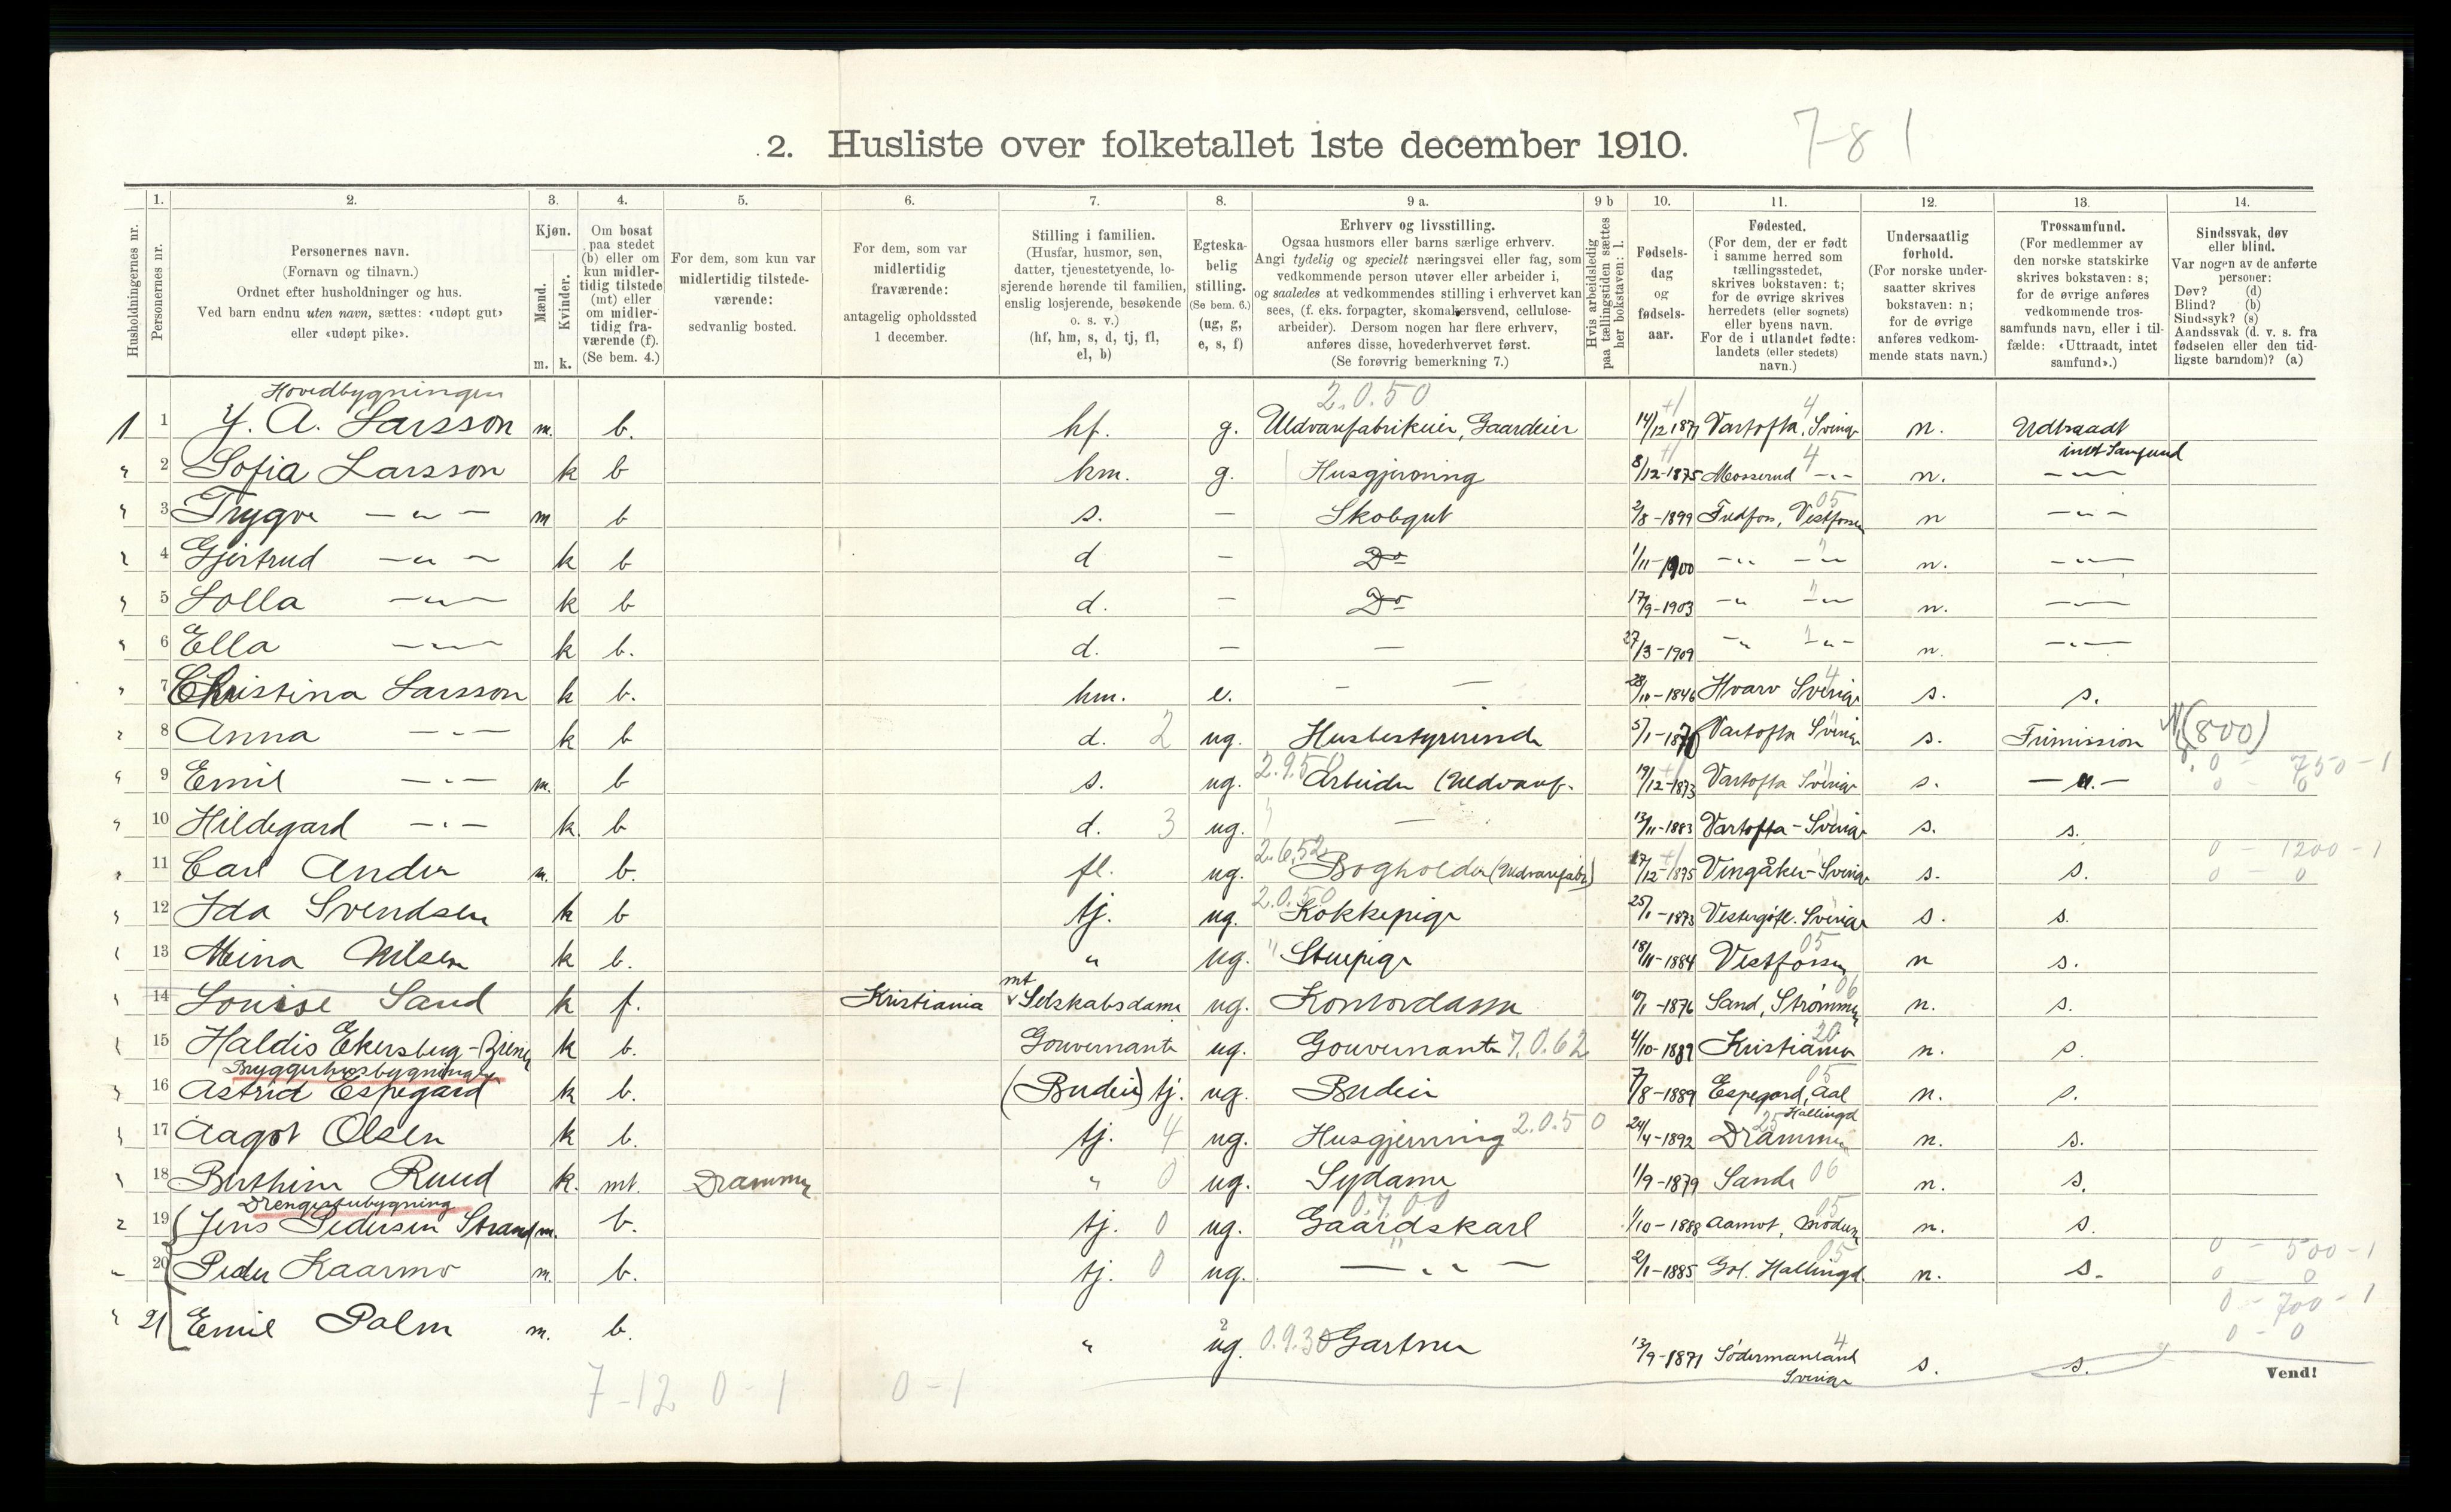 2. Husliste over folketallet 1ste december 1910.
7-8 1
Husholdningernes nr.
1. Personernes nr.
2. Personernes navn. (Fornavn og tilnavn.) Ordnet efter husholdninger og hus. Ved barn endnu uten navn, sættes: «udøpt gut» eller «udøpt pike».
3. Kjøn. Mænd. m. Kvinder. k.
4. Om bosat paa stedet (b) eller om kun midlertidig tilstede (mt) eller om midlertidig fraværende (f). (Se bem. 4.)
5. For dem, som kun var midlertidig tilstedeværende: sedvanlig bosted.
6. For dem, som var midlertidig fraværende: antagelig opholdssted 1 december.
7. Stilling i familien. (Husfar, husmor, søn, datter, tjenestetyende, losjerende hørende til familien, enslig losjerende, besøkende o. s. v.) (hf, hm, s, d, tj, fl, el, b)
8. Egteskabelig stilling. (Se bem. 6.) (ug, g, e, s, f)
9 a. Erhverv og livsstilling. Ogsaa husmors eller barns særlige erhverv. Angi tydelig og specielt næringsvei eller fag, som vedkommende person utøver eller arbeider i, og saaledes at vedkommendes stilling i erhvervet kan sees, (f. eks. forpagter, skomakersvend, cellulosearbeider). Dersom nogen har flere erhverv, anføres disse, hovederhvervet først. (Se forøvrig bemerkning 7.)
9 b Hvis arbeidsledig paa tællingstiden sættes her bokstaven: l.
10. Fødselsdag og fødselsaar.
11. Fødested. (For dem, der er født i samme herred som tællingsstedet, skrives bokstaven: t; for de øvrige skrives herredets (eller sognets) eller byens navn. For de i utlandet fødte: landets (eller stedets) navn.)
12. Undersaatlig forhold. (For norske undersaatter skrives bokstaven: n; for de øvrige anføres vedkommende stats navn.)
13. Trossamfund. (For medlemmer av den norske statskirke skrives bokstaven: s; for de øvrige anføres vedkommende trossamfunds navn, eller i tilfælde: «Uttraadt, intet samfund».)
14. Sindssvak, døv eller blind. Var nogen av de anførte personer: Døv? (d) Blind? (b) Sindssyk? (s) Aandssvak (d. v. s. fra fødselen eller den tidligste barndom)? (a)
Hovedbygningen 2.0.50
1 1 Y. A. Larsson m. b. hf. g. Uldvarefabrikeier, Gaardeier 14/12 1871 Vartofta, Sverige n. Udtraadt intet Samfund
" 2 Sofia Larsson k b hm. g. Husgjerning 8/12-1875 Mosserud -"- n. -"-
" 3 Trygve -"- m b s. - Skolegut 2/8-1899 Fredfos, Vestfossen n -"-
" 4 Gjertrud -"- k b d - Do 1/11-1900 -"- -"- n. -"-
" 5 Lolla -"- k b d. - Do 17/9-1903 -"- -"- n. -"-
" 6 Ella -"- k b. d. - - 27/3-1909 -"- -"- n. -"-
" 7 Christina Larsson k b. hm. e. - - 28/10-1846 Hvarv Sverige s. s.
" 8 Anna -"- k b d. 2 ug. Husbestyrerinde 5/1-1870 Vartofta Sverige s. Frimission (800)
" 9 Emil -"- m. b s. ug. 2.9.50 Arbeider (Uldvaref. 19/12-1873 Vartofta Sverige s. -"- 0 - 750-1
" 10 Hildegard -"- k. b d. 3 ug. - 13/11-1883 Vartofta-Sverige s. s.
" 11 Carl Ander m. b. fl. ug. 2.6.52 Bogholder (Uldvarefabr.) 17/12-1875 Vingåker-Sverige s. s. 0 - 1200-1
" 12 Ida Svendsen k b tj. ug. 2.0.50 Kokkepige 25/1-1873 Vestergötl. Sverige s. s.
" 13 Meina Nilsen k b. " ug. " Stuepige 18/11-1884 Vestfossen 05 n s.
" 14 Louise Sand k f. Kristiania mt Selskabsdame ug. Kontordame 10/1-1876 Sand, Strømmen 06 n. s.
" 15 Haldis Ekersberg-Brenn k b. Gouvernante ug. Gouvernante 7.0.62 4/10-1889 Kristiania 20 n. s.
Bryggerhusbygningen
" 16 Astrid Espegard k b. (Budeie) tj. ug. Budeie 7/8-1889 Espegard, Aal Hallingd 05 n. s.
" 17 Aagot Olsen k b. tj. 4 ug. Husgjerning 2.0.50 24/4-1892 Drammen 25 n. s.
" 18 Berthine Ruud k. mt. Drammen " 0 ug. Sydame 1/9-1879 Sande 06 n. s.
Drengestubygning 0.7.00
" 19 Jens Pedersen Strand m. b. tj. 0 ug. Gaardskarl 1/10-1888 Aamot, Modum 05 n. s.
" 20 Peder Kaarmo m. b. tj. 0 ug. -"- 2/1-1885 Gol. Hallingd. 05 n. s. 0 - 500-1
" 21 Emil Palm m. b. " ug. 0.9.30 Gartner 13/9-1871 Södermanland Sverige 4 s. s. 0 - 700-1
0 - 0
7-12 0-1 0-1
Vend!